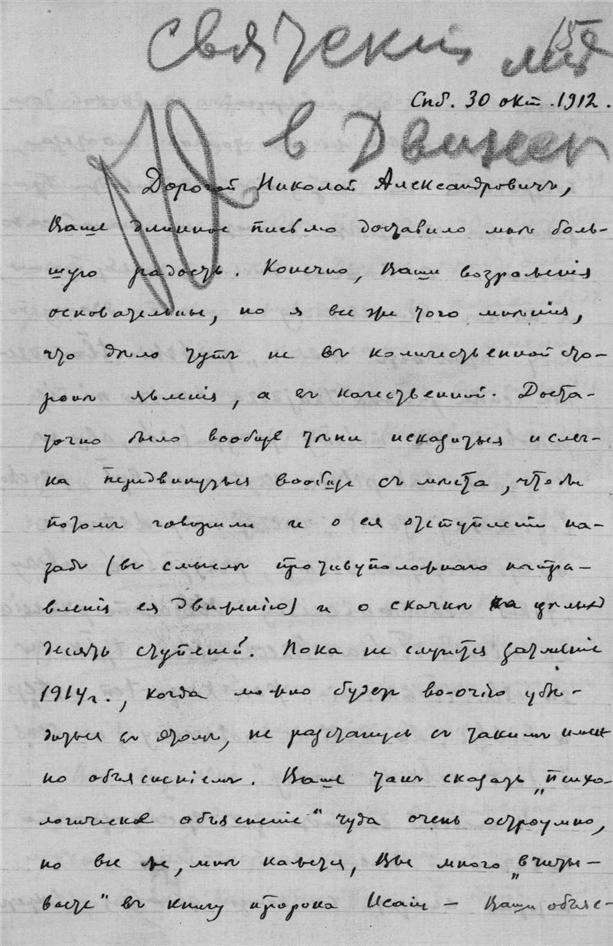 Святский
15
Спб. 30 окт. 1912.
в
Дорогой Николай Александровичъ,
Ваше длинное письмо доставило мнѣ боль-
шую радость. Конечно, Ваши возраженія
основательны, но я все же того мнѣнія,
что дѣло тутъ не въ количественной сто-
ронѣ явленія, а въ качественной. Доста-
точно было вообще тѣни исказиться и слег-
ка передвинуться вообще съ мѣста, чтобы
потомъ говорили и о ея отступленіи на-
задъ (въ смыслѣ противуположнаго направ-
вленія ея движенію) и о скачкѣ на цѣлыхъ
десять ступеней. Пока не случится затменіе
1914 г., когда можно будетъ во-очію убѣ-
диться въ этомъ, не разстанусь съ такимъ имен
но объясненіемъ. Ваше такъ сказать „психо-
логическое объясненіе“ чуда очень остроумно,
но все же, мнѣ кажется, Вы много „вчиты-
ваете“ въ книгу пророка Исаіи — Ваши объяс-